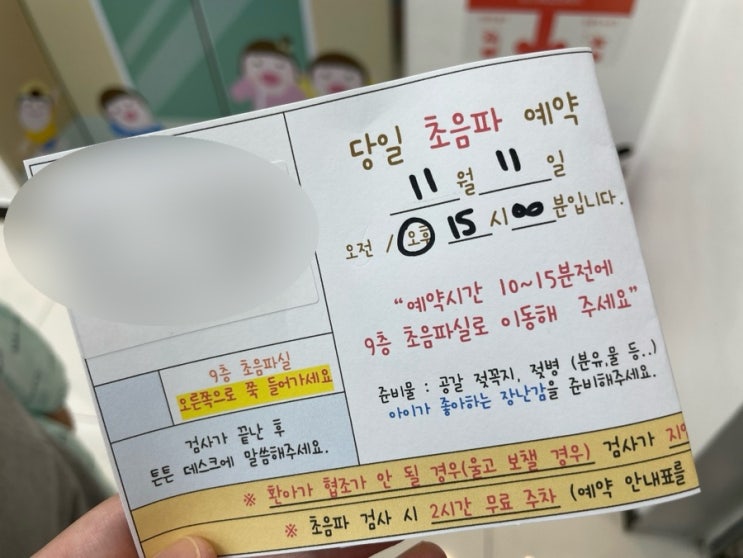 당일 초음파 예약
11 월 11 일
오전 / 오후 15 시 00 분입니다.
“예약시간 10~15분전에
9층 초음파실로 이동해 주세요”
준비물 : 공갈 젖꼭지, 젖병 (분유,물 등..)
아이가 좋아하는 장난감을 준비해주세요.
9층 초음파실
오른쪽으로 쭉 들어가세요
검사가 끝난 후
튼튼 데스크에 말씀해주세요.
※ 환아가 협조가 안 될 경우(울고 보챌 경우) 검사가
※ 초음파 검사 시 2시간 무료 주차 (예약 안내표를